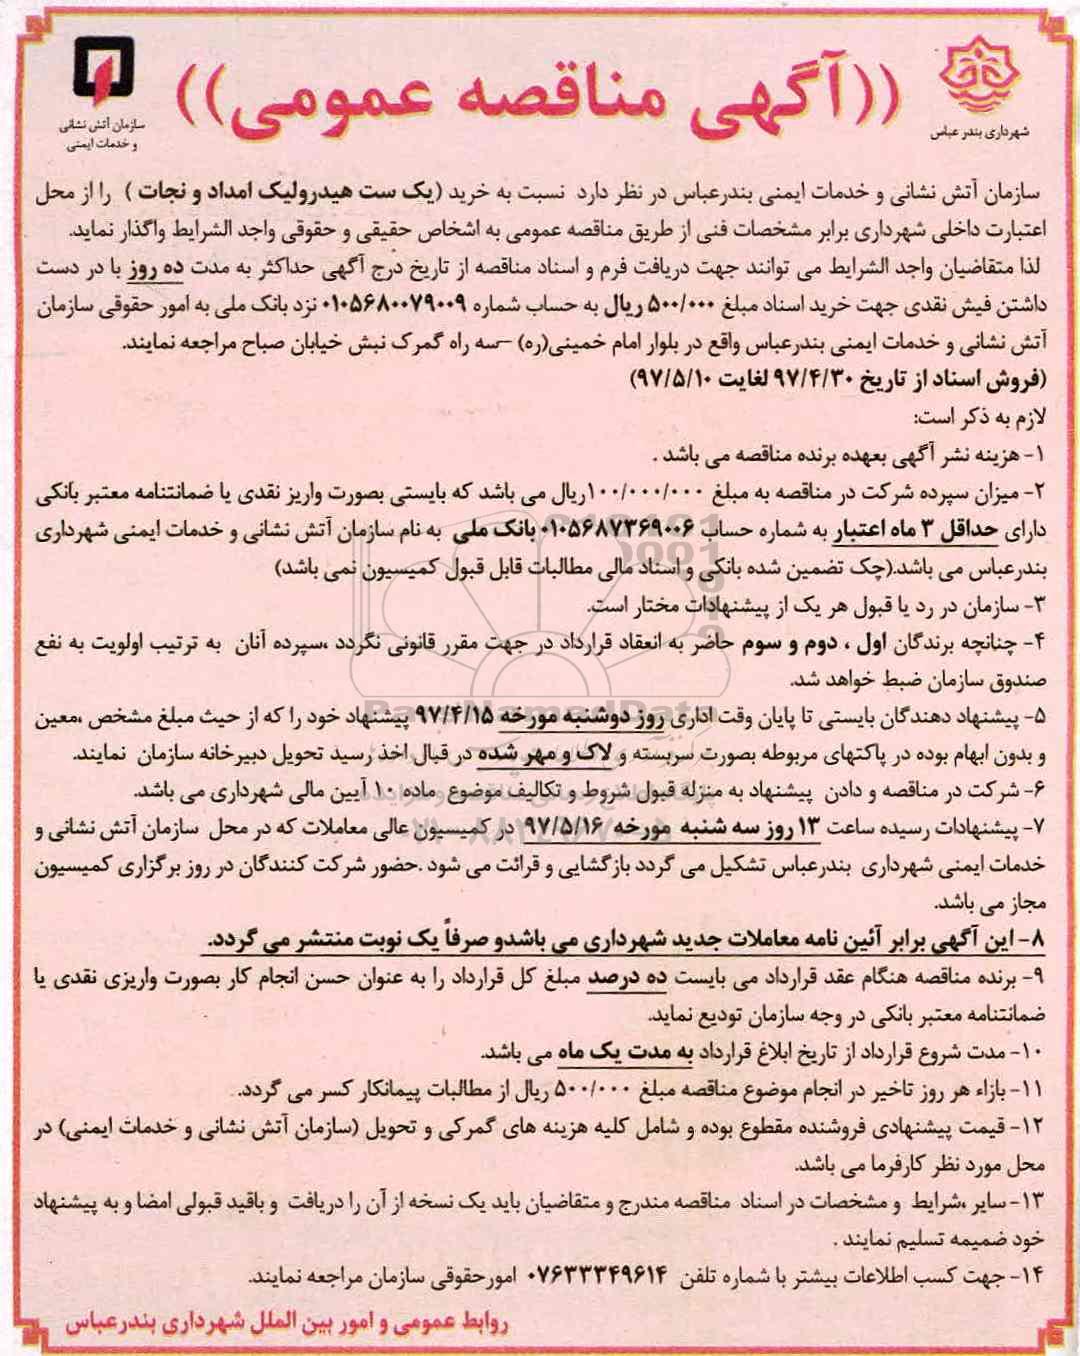 ((آگهی مناقصه عمومی))
شهرداری بندر عباس
سازمان آتش نشانی
و خدمات ایمنی
سازمان آتش نشانی و خدمات ایمنی بندرعباس در نظر دارد نسبت به خرید (یک ست هیدرولیک امداد و نجات ) را از محل
اعتبارت داخلی شهرداری برابر مشخصات فنی از طریق مناقصه عمومی به اشخاص حقیقی و حقوقی واجد الشرایط واگذار نماید.
لذا متقاضیان واجد الشرایط می توانند جهت دریافت فرم و اسناد مناقصه از تاریخ درج آگهی حداکثر به مدت ده روز با در دست
داشتن فیش نقدی جهت خرید اسناد مبلغ ۵۰۰/۰۰۰ ریال به حساب شماره ۰۱۰۵۶۸۰۰۷۹۰۰۹ نزد بانک ملی به امور حقوقی سازمان
آتش نشانی و خدمات ایمنی بندرعباس واقع در بلوار امام خمینی(ره) –سه راه گمرک نبش خیابان صباح مراجعه نمایند.
(فروش اسناد از تاریخ ۹۷/۴/۳۰ لغایت ۹۷/۵/۱۰)
لازم به ذکر است:
۱- هزینه نشر آگهی بعهده برنده مناقصه می باشد .
۲- میزان سپرده شرکت در مناقصه به مبلغ ۱۰۰/۰۰۰/۰۰۰ریال می باشد که بایستی بصورت واریز نقدی یا ضمانتنامه معتبر بانکی
دارای حداقل ۳ ماه اعتبار به شماره حساب ۰۱۰۵۶۸۷۳۶۹۰۰۶ بانک ملی به نام سازمان آتش نشانی و خدمات ایمنی شهرداری
بندرعباس می باشد.(چک تضمین شده بانکی و اسناد مالی مطالبات قابل قبول کمیسیون نمی باشد)
۳- سازمان در رد یا قبول هر یک از پیشنهادات مختار است.
۴- چنانچه برندگان اول ، دوم و سوم حاضر به انعقاد قرارداد در جهت مقرر قانونی نگردد ،سپرده آنان به ترتیب اولویت به نفع
صندوق سازمان ضبط خواهد شد.
۵- پیشنهاد دهندگان بایستی تا پایان وقت اداری روز دوشنبه مورخه ۹۷/۴/۱۵ پیشنهاد خود را که از حیث مبلغ مشخص ،معین
و بدون ابهام بوده در پاکتهای مربوطه بصورت سربسته و لاک و مهر شده در قبال اخذ رسید تحویل دبیرخانه سازمان نمایند.
۶- شرکت در مناقصه و دادن پیشنهاد به منزله قبول شروط و تکالیف موضوع ماده ۱۰ آیین مالی شهرداری می باشد.
۷- پیشنهادات رسیده ساعت ۱۳ روز سه شنبه مورخه ۹۷/۵/۱۶ در کمیسیون عالی معاملات که در محل سازمان آتش نشانی و
خدمات ایمنی شهرداری بندرعباس تشکیل می گردد بازگشایی و قرائت می شود .حضور شرکت کنندگان در روز برگزاری کمیسیون
مجاز می باشد.
۸- این آگهی برابر آئین نامه معاملات جدید شهرداری می باشدو صرفاً یک نوبت منتشر می گردد.
۹- برنده مناقصه هنگام عقد قرارداد می بایست ده درصد مبلغ کل قرارداد را به عنوان حسن انجام کار بصورت واریزی نقدی یا
ضمانتنامه معتبر بانکی در وجه سازمان تودیع نماید.
۱۰- مدت شروع قرارداد از تاریخ ابلاغ قرارداد به مدت یک ماه می باشد.
۱۱- بازاء هر روز تاخیر در انجام موضوع مناقصه مبلغ ۵۰۰/۰۰۰ ریال از مطالبات پیمانکار کسر می گردد.
۱۲- قیمت پیشنهادی فروشنده مقطوع بوده و شامل کلیه هزینه های گمرکی و تحویل (سازمان آتش نشانی و خدمات ایمنی) در
محل مورد نظر کارفرما می باشد.
۱۳- سایر ،شرایط و مشخصات در اسناد مناقصه مندرج و متقاضیان باید یک نسخه از آن را دریافت و باقید قبولی امضا و به پیشنهاد
خود ضمیمه تسلیم نمایند .
۱۴- جهت کسب اطلاعات بیشتر با شماره تلفن ۰۷۶۳۳۳۴۹۶۱۴ امورحقوقی سازمان مراجعه نمایند.
روابط عمومی و امور بین الملل شهرداری بندرعباس